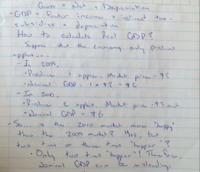 Gross = Net + Depreciation
- GDP = Factor income + indirect tax -
subsidies + depreciation
How to calculate Real GDP?
Suppose that the economy only produce
apples...
- In 2009,
Produce 1 apple. Market price = $2
Nominal GDP: 1 x $2 = $2
- In 2010,
Produce 2 apples. Market price = $3
Nominal GDP = $6
- So... is the 2010 market more "happy"
than the 2009 market? Yes, but
two times or three times "happier"?
Only two times "happier"! Therefore,
Nominal GDP can be misleading